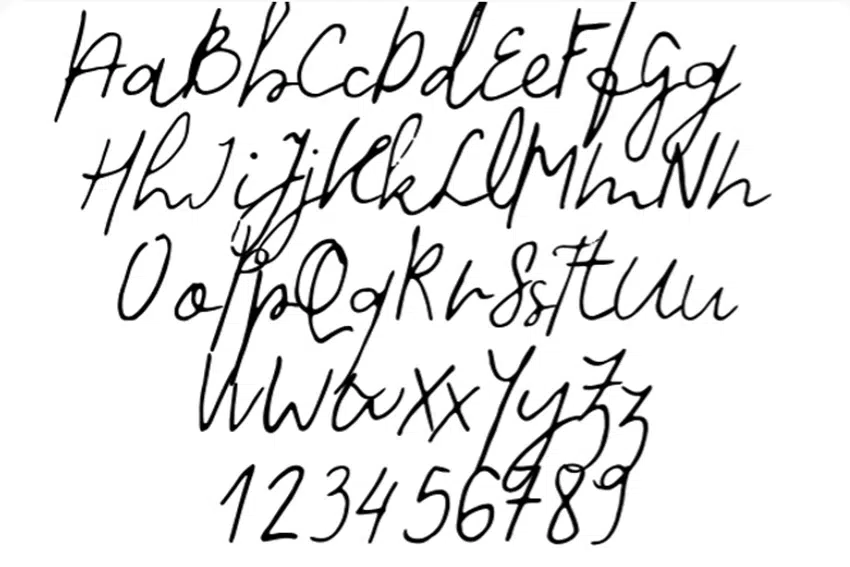 AaBbCcDdEeFfGg
HhIiJjKkLlMmNn
OoPpQqRrSsTtUu
VvWwXxYyZz
123456789